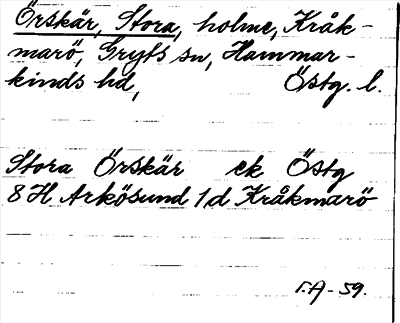 Örskär, Stora, holme, Kråk-
marö, Gryts sn, Hammar-
kinds hd, Östg. l.
Stora Örskär ek Östg
8 H Arkösund 1 d Kråkmarö
I.A-59.